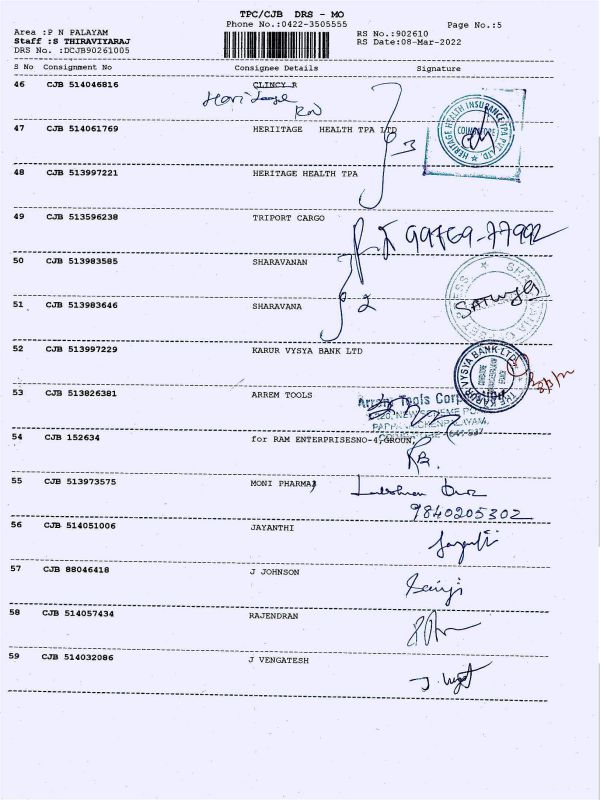 TPC/CJB DRS - MO
Phone No.:0422-3505555
Page No.:5
Area :P N PALAYAM
RS No.:902610
Staff :S THIRAVIYARAJ
RS Date:08-Mar-2022
DRS No. :DCJB90261005
S No Consignment No Consignee Details Signature
46 CJB 514046816 CLINCY R
Heritage
47 CJB 514061769 HERIITAGE HEALTH TPA LTD
3
HERITAGE HEALTH INSURANCE TPA PVT. LTD.
COIMBATORE
48 CJB 513997221 HERITAGE HEALTH TPA
49 CJB 513596238 TRIPORT CARGO
99769-77992
50 CJB 513983585 SHARAVANAN
51 CJB 513983646 SHARAVANA
2
52 CJB 513997229 KARUR VYSYA BANK LTD
THE KARUR VYSYA BANK LTD
53 CJB 513826381 ARREM TOOLS
Arrem Tools
54 CJB 152634 for RAM ENTERPRISESNO-4,GROUN,
55 CJB 513973575 MONI PHARMA
9840205302
56 CJB 514051006 JAYANTHI
57 CJB 88046418 J JOHNSON
58 CJB 514057434 RAJENDRAN
59 CJB 514032086 J VENGATESH